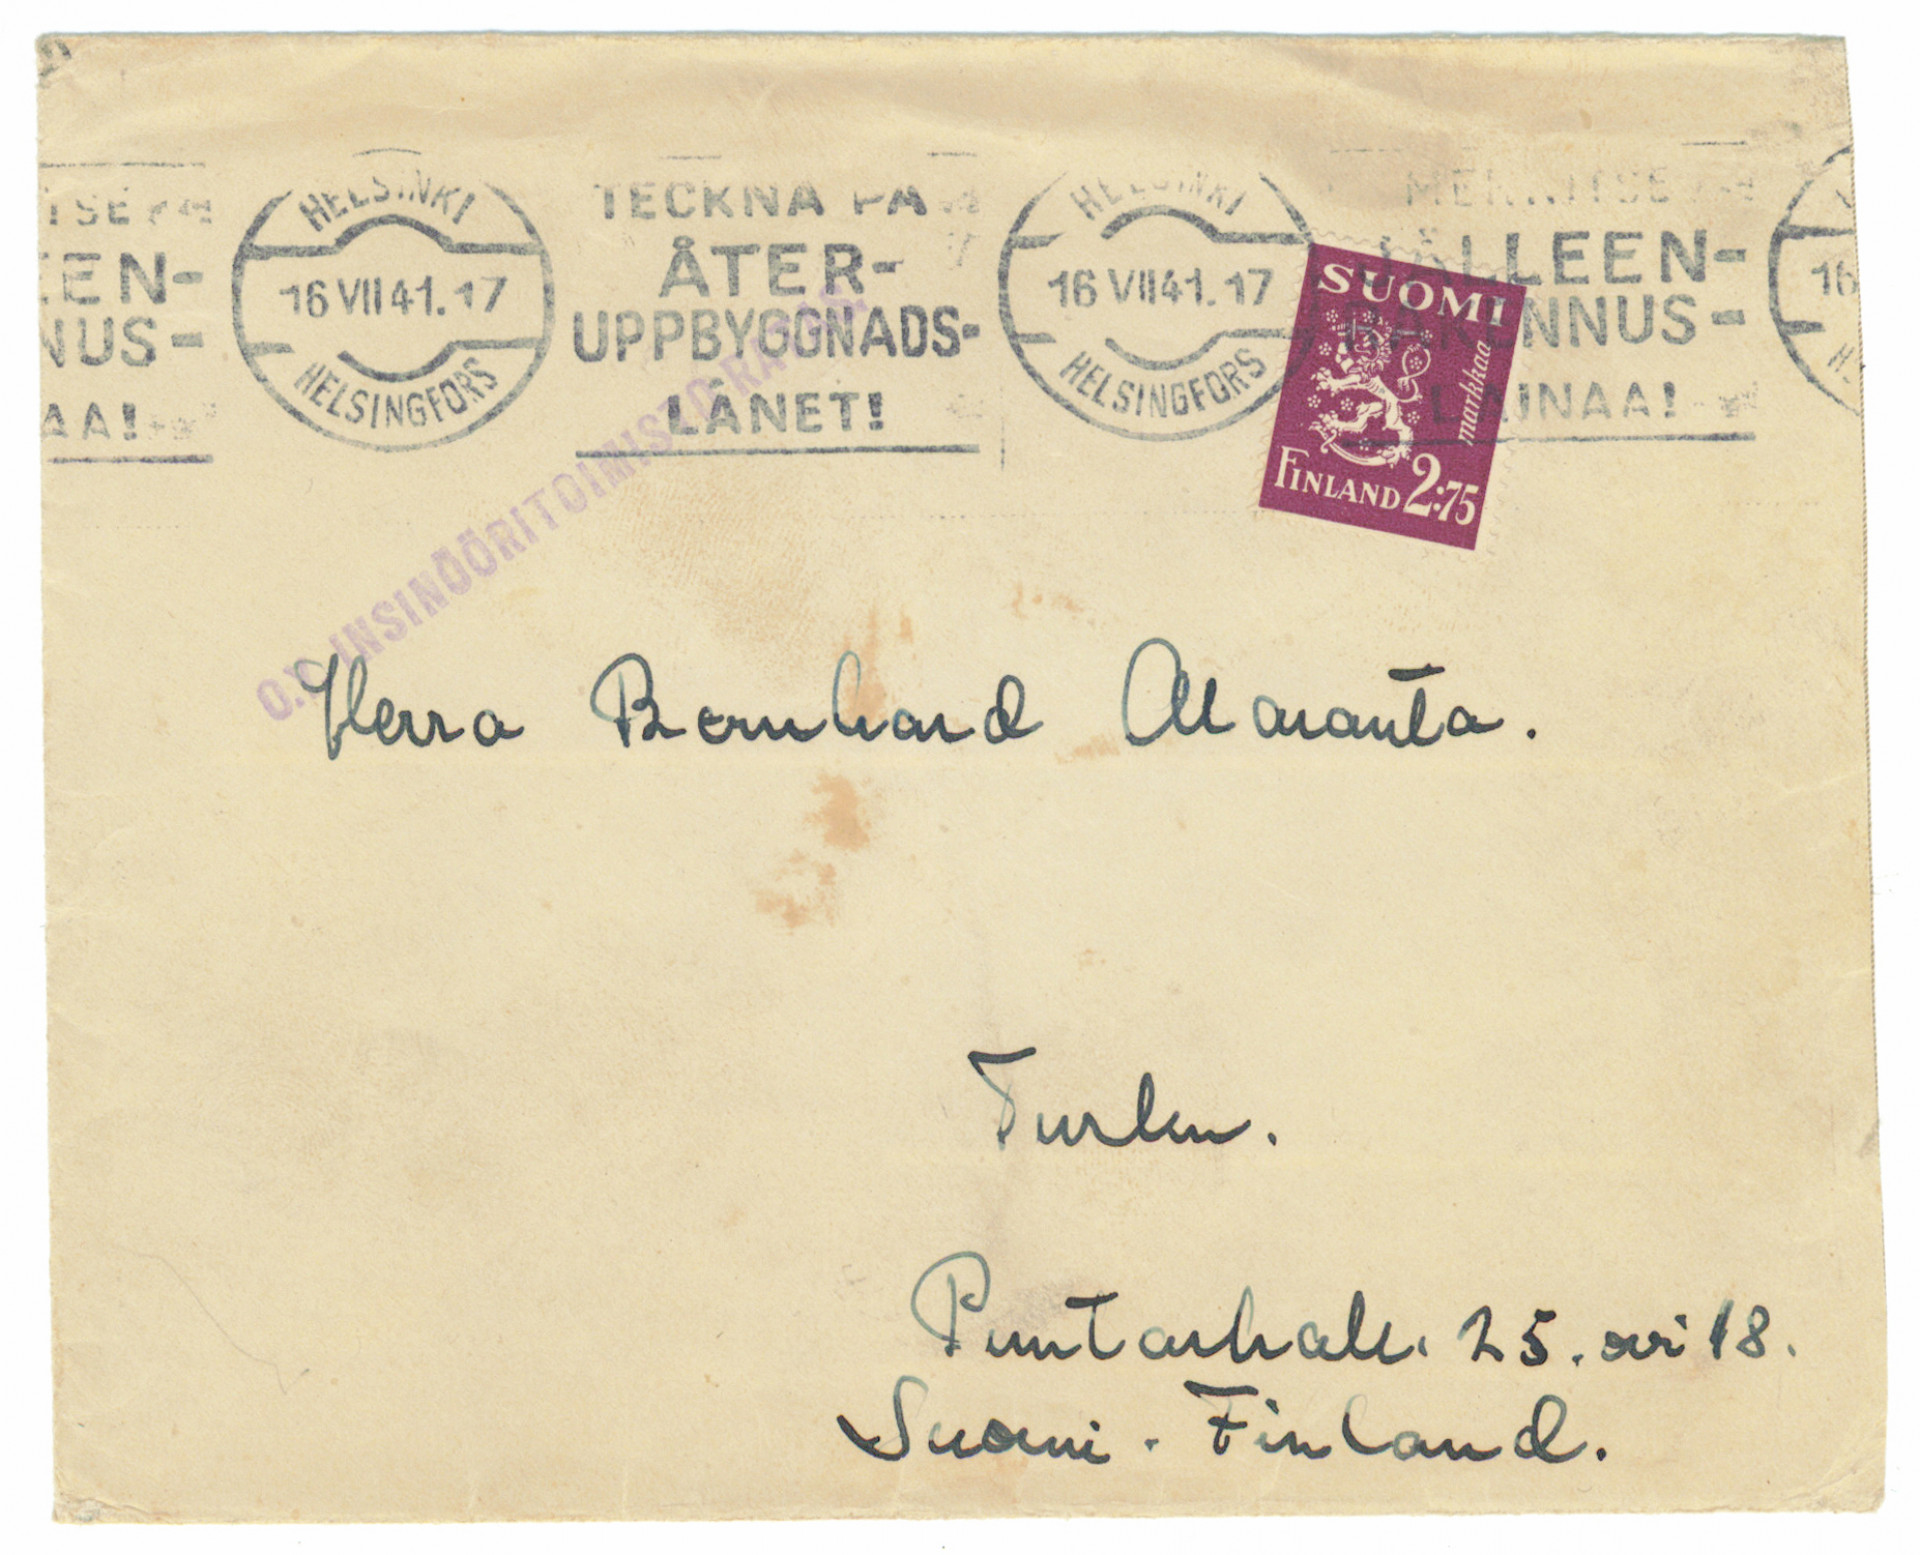 ITSE
EEN-
NUS-
AA!
HELSINKI
16 VII 41. 17
HELSINGFORS
TECKNA PÅ
ÅTER-
UPPBYGGNADS-
LÅNET!
HELSINKI
16 VII 41. 17
HELSINGFORS
MERKITSE
JÄLLEEN-
RAKENNUS-
LAINAA!
16
SUOMI
markkaa
FINLAND 2:75
O.Y. INSINÖÖRITOIMISTO
Herra Bernhard Alaranta.
Turku.
Puutarhak. 25. ovi 18.
Suomi - Finland.